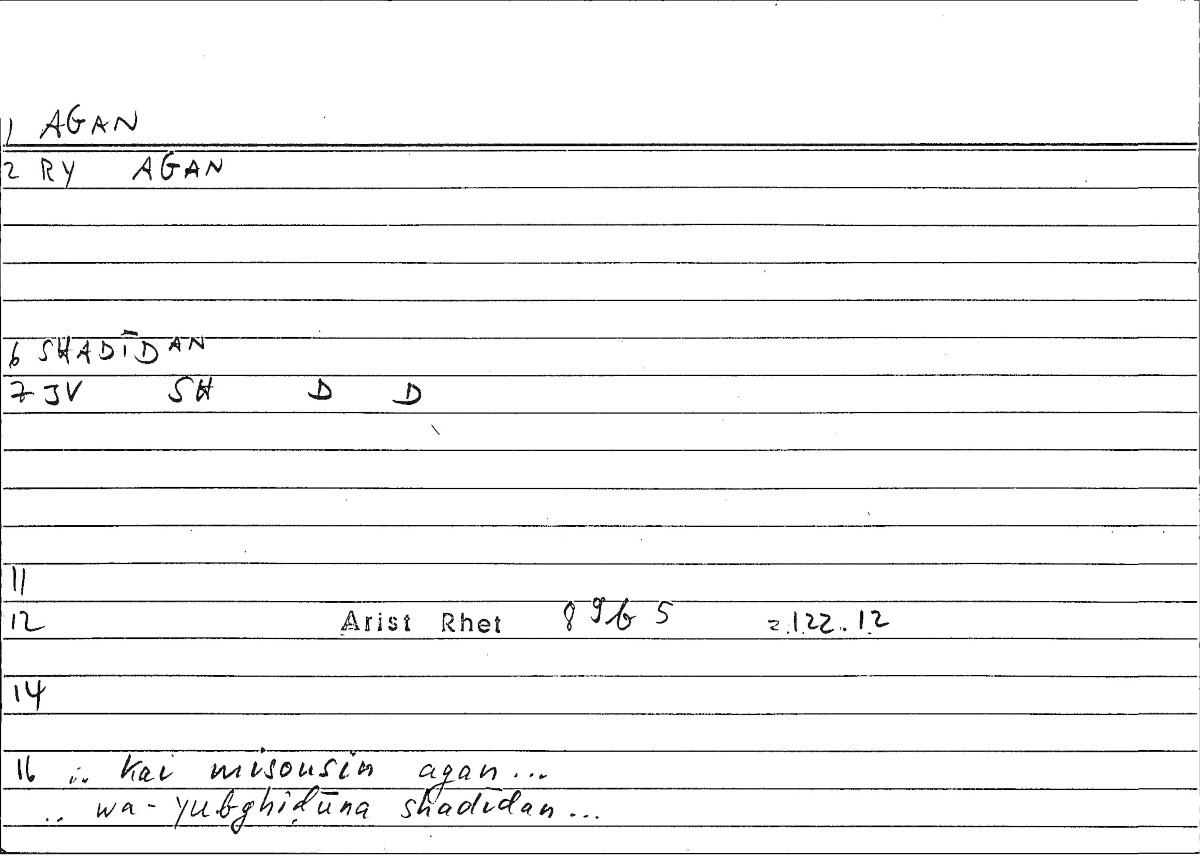 1 AGAN
2 RY AGAN
6 SHADĪDAN
7 JV SH D D
11
12 Arist Rhet 89b 5 = 122.12
14
16 .. kai misousin agan...
.. wa-yubghiḍūna shadīdan...